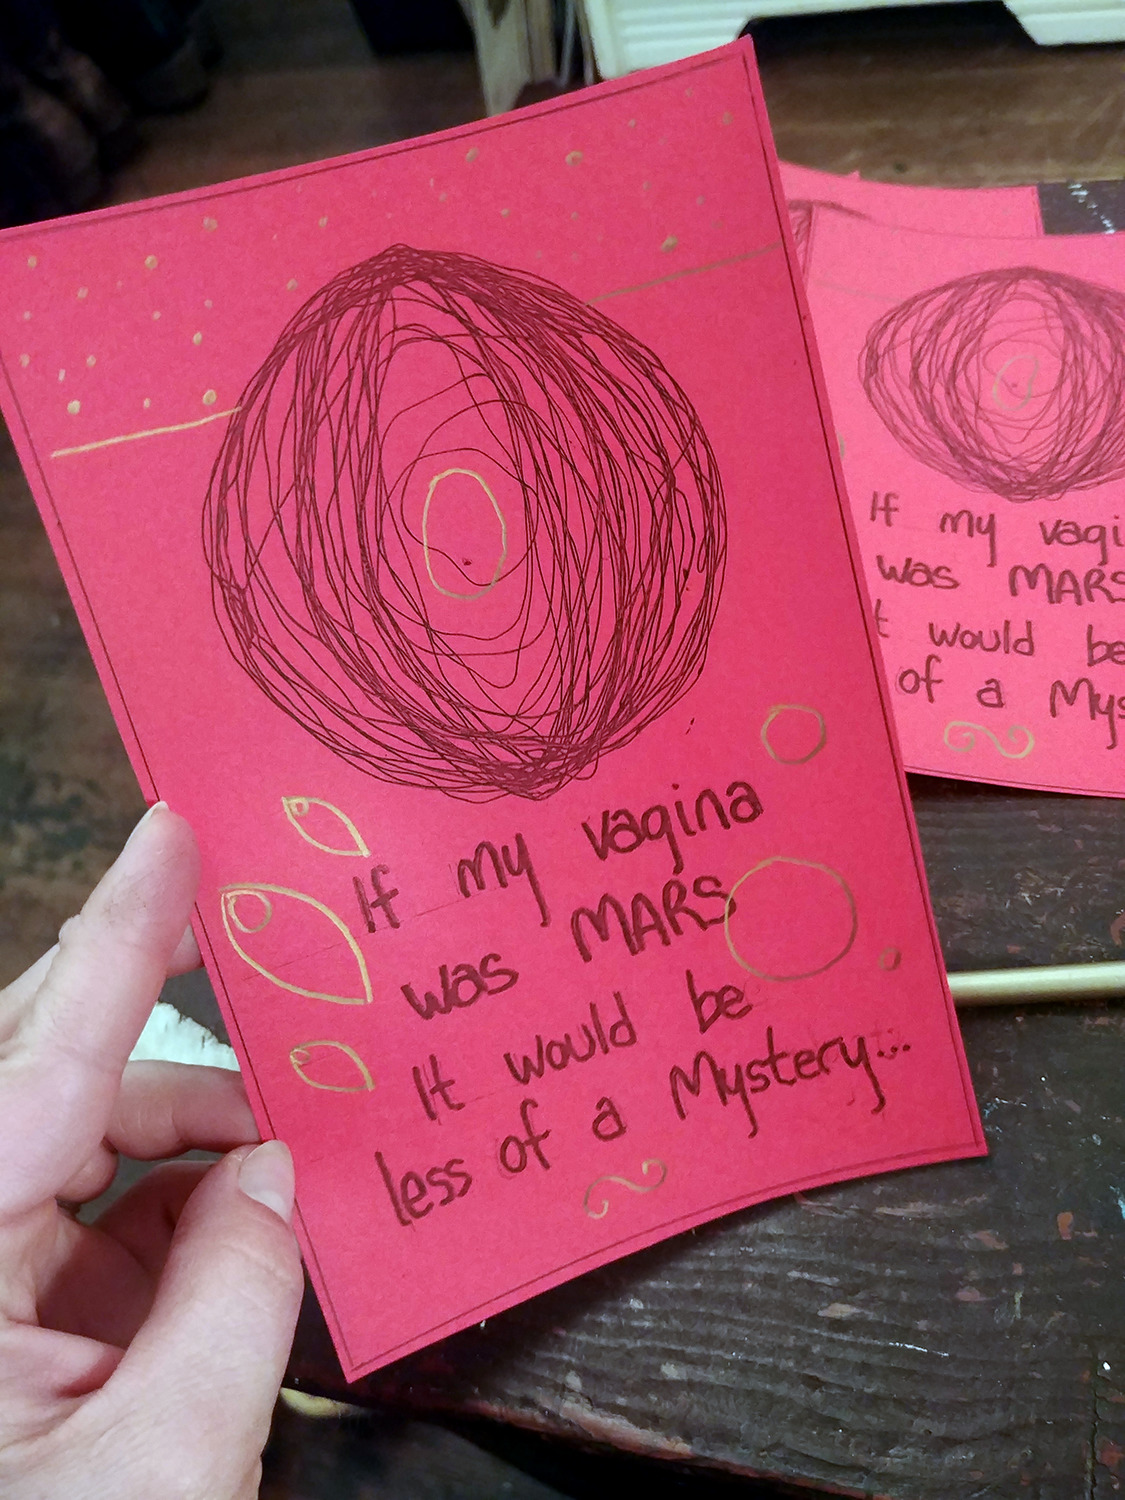 If my vagina
was MARS
It would be
less of a Mystery...
If my vagi
was MARS
t would be
of a Mys